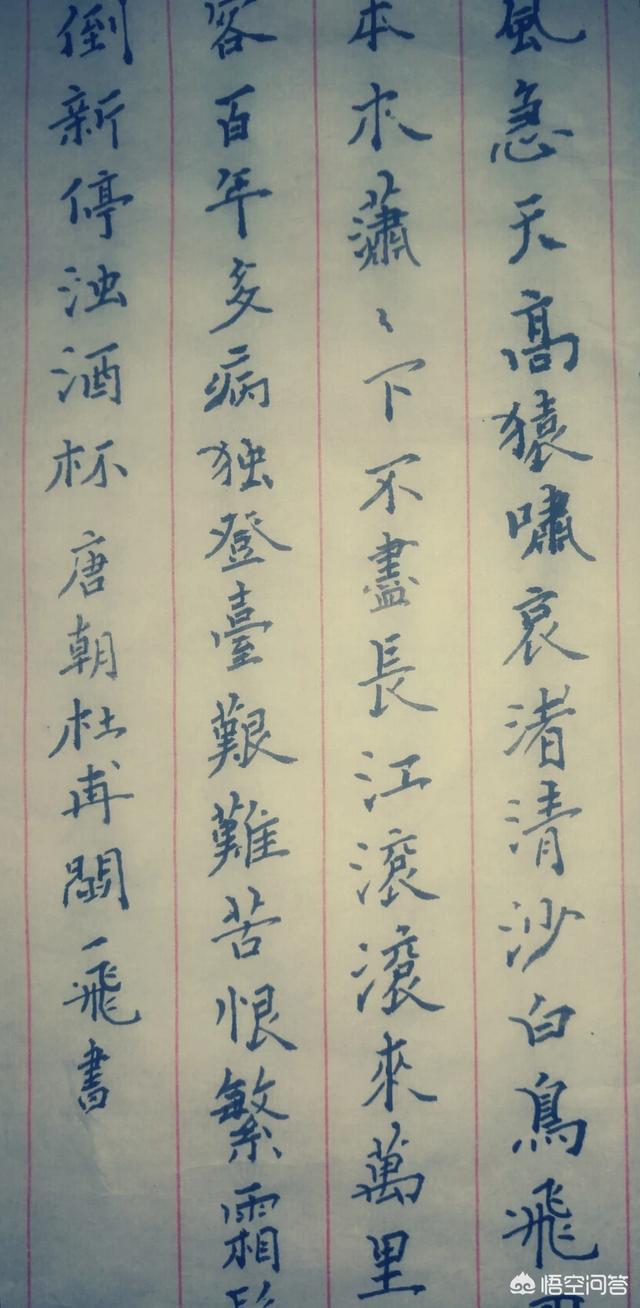 風急天髙猿嘯哀渚清沙白鳥飛
本木蕭々下不盡長江滚滚來萬里
客百年多病独登臺艱難苦恨繁霜
倒新停浊酒杯唐朝杜甫一飛書
悟空问答